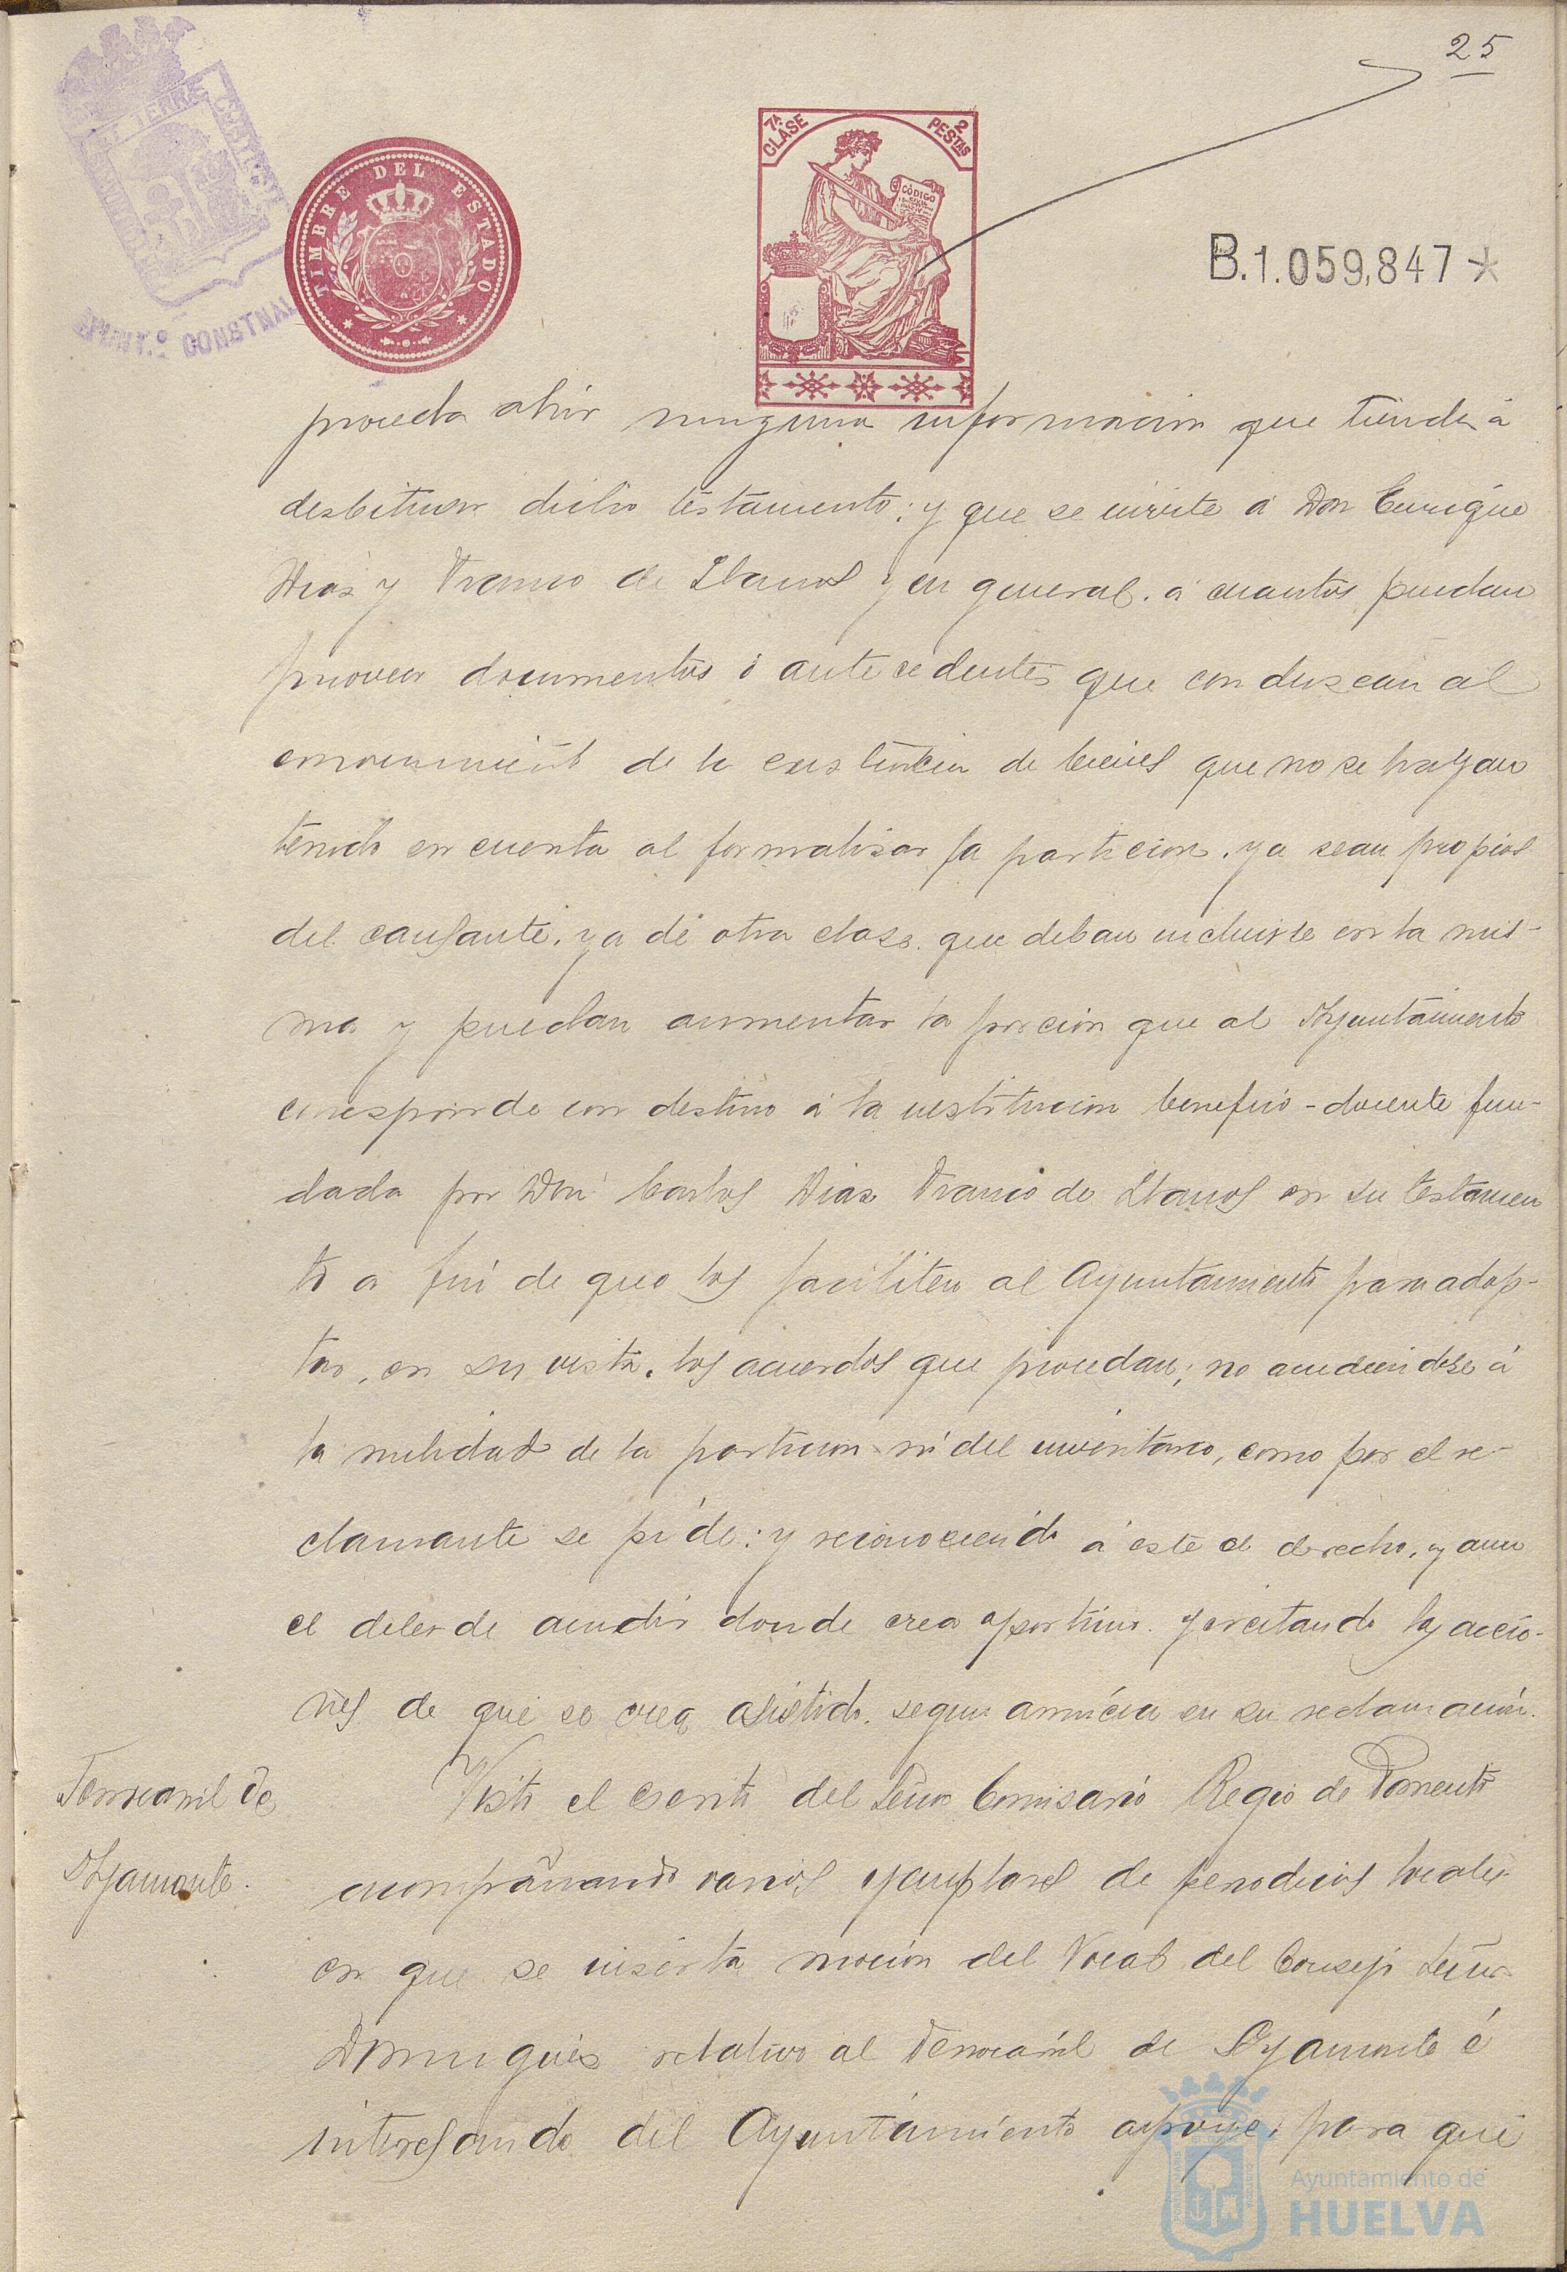 25
7ª CLASE
2 PESTAS
CÓDIGO
TIMBRE DEL ESTADO
B.1.059,847*
CONSTNAL
proceda abrir ninguna informacion que tienda á
desvirtuar dicho testamento; y que se invite á Don Enrique
Dias y Franco de Llanos y en general á cuantos puedan
proveer documentos ó antecedentes que conduzcan al
conocimiento de la existencia de bienes que no se hayan
tenido en cuenta al formalizar la particion, ya sean propios
del causante, ya de otra clase que deban incluirse en la mis-
ma y puedan aumentar la porcion que al Ayuntamiento
corresponde con destino á la institucion benefico-docente fun-
dada por Don Carlos Dias Franco de Llanos en su testamen
to a fin de que los faciliten al Ayuntamiento para adop-
tar, en su vista, los acuerdos que procedan; no accediendose á
la nulidad de la particion ni del inventario, como por el re-
clamante se pide: y reconociendo á este el derecho, y aun
el deber de acudir donde crea oportuno ejercitando las accio-
nes de que se crea asistido, segun anuncia en su reclamación.
Ferrocarril de
Ayamonte.
Visto el escrito del Señor Comisario Regio de Fomento
acompañando varios ejemplares de periodicos locales
en que se inserta mocion del Vocal del Consejo Señor
Dominguez relativo al Ferrocarril de Ayamonte é
interesando del Ayuntamiento apoye, para que
Ayuntamiento de
HUELVA